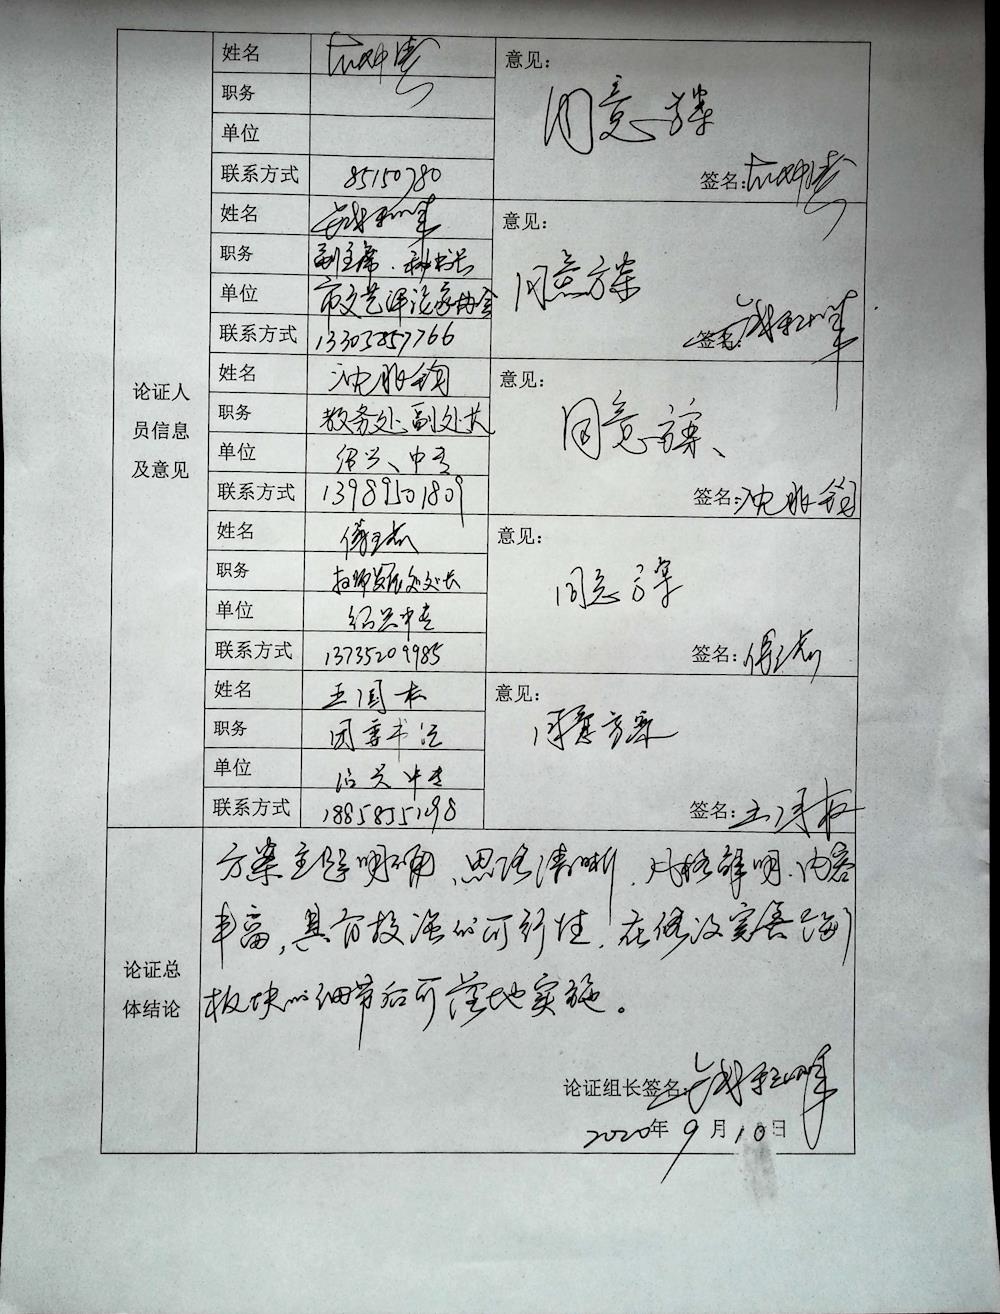 姓名
职务
单位
联系方式 85150780
意见：
同意方案
签名：
姓名
职务 副主席、秘书长
单位 市文艺评论家协会
联系方式 13305857766
意见：
同意方案
签名：
论证人
员信息
及意见
姓名 沈
职务 教务处副处长
单位 绍兴、中专
联系方式 13989501809
意见：
同意方案、
签名：沈
姓名 傅
职务 教师发展处处长
单位 绍兴中专
联系方式 13735209985
意见：
同意方案
签名：傅
姓名 王国
职务 团委书记
单位 绍兴中专
联系方式 18858355198
意见：
同意方案
签名：王
论证总
体结论
方案主题明确、思路清晰，风格鲜明、内容
丰富，具有较强的可行性，在修改完善
板块的细节后可落地实施。
论证组长签名：
2020年9月10日